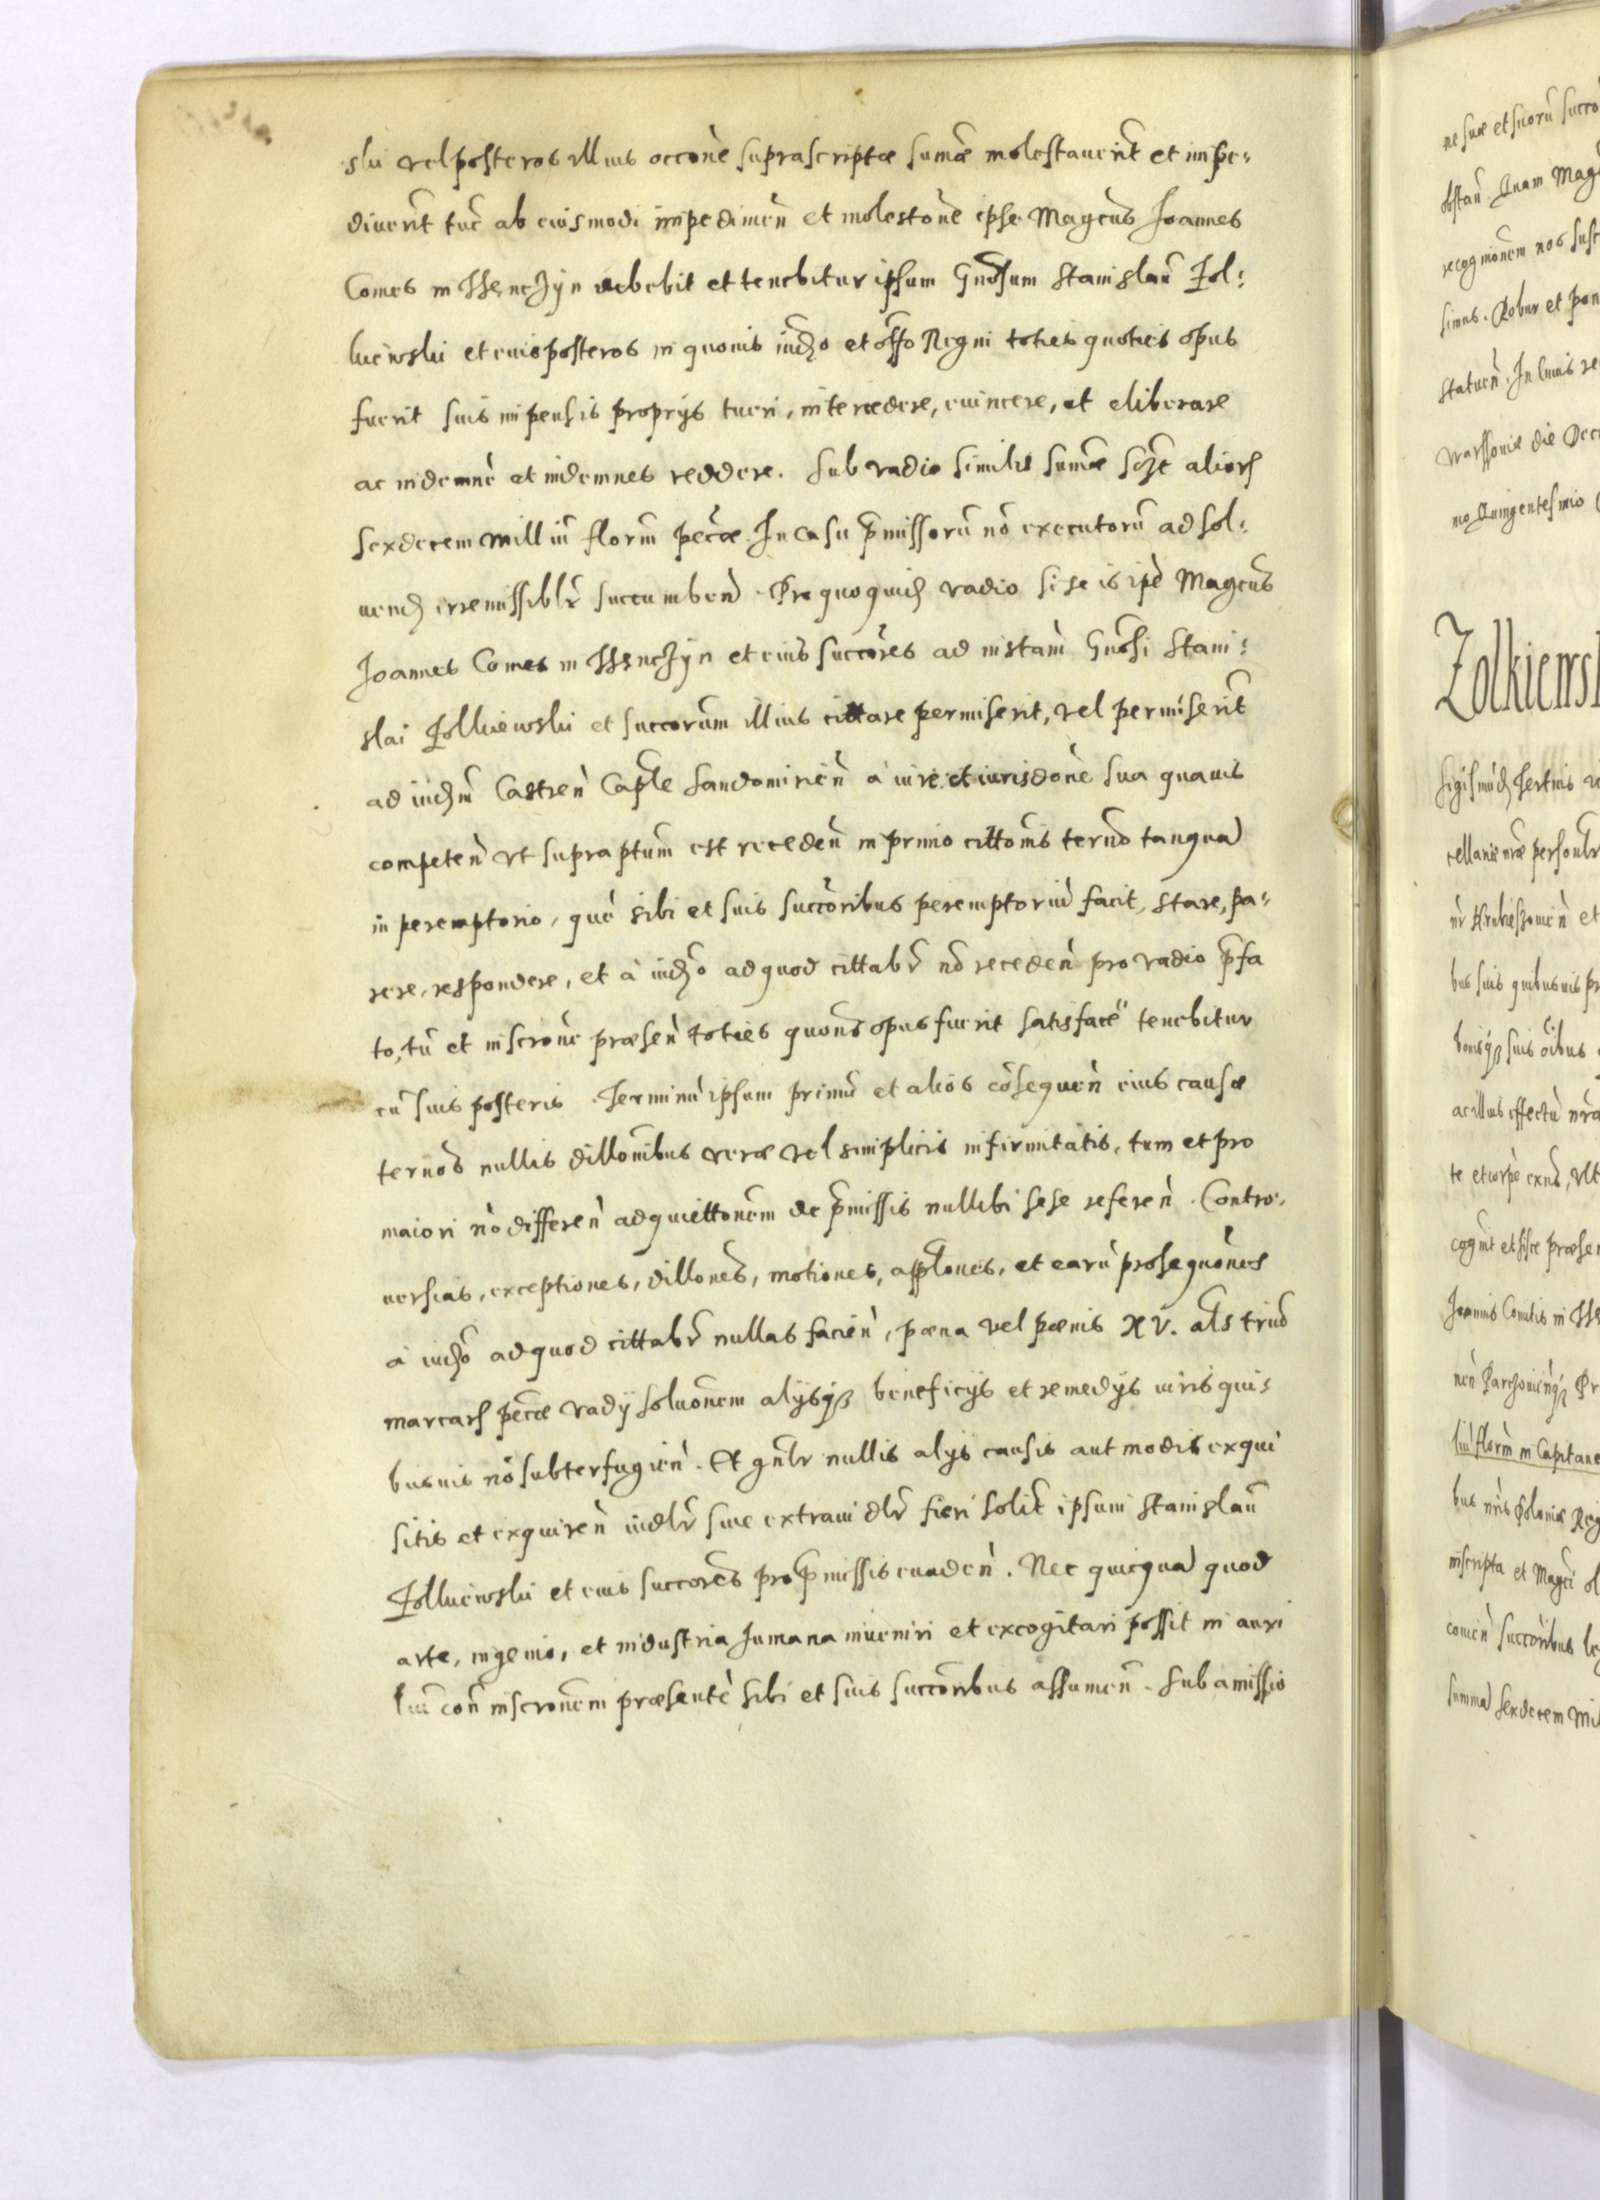 ski vel posteros illius occone suprascriptæ sumæ molestauerit et impe-
diuerit tuc ab eiusmodi impedimen et molestone ipse Magcus Joannes
Comes in Thenczyn debebit et tenebitur ipsum Gnosum Stanislau Żol-
kiewski et eius posteros in quouis iudo et offo Regni toties quoties opus
fuerit suis impensis proprijs tueri, intercedere, euincere, et eliberare
ac indemne et indemnes reddere. Sub vadio similis sumæ sczt alior
sexdecem milliu florm pecæ. In casu pmissoru no executoru ad sol-
uend irremissiblr succumben. Pro quo quid vadio si se is ipe Magcus
Joannes Comes in Thenczyn et eius succores ad instan Gnosi Stani-
slai Żolkiewski et succorum illius cittare permiserit, vel permiserit
ad iudm Castren Caple Sandomirien a iure et iurisdone sua quauis
competen vt supraptum est receden in primo cittonis terno tanqua
in peremptorio, que sibi et suis succoribus peremptoriu facit, stare, pa-
rere, respondere, et a iudo ad quod cittabr no receden pro vadio pfa
to, tu et inscrone præsen toties quoties opus fuerit satisface tenebitur
cu suis posteris. Terminu ipsum primu et alios consequen eius causæ
ternos nullis dillonibus veræ vel simplicis infirmitatis, tum et pro
maiori no differen ad quiettonem de pmissis nullibi sese referen. Contro-
uersias, exceptiones, dillones, motiones, applones, et earu prosequones
a iudo ad quod cittabr nullas facien, pæna vel pænis XV. als triu
marcar pecæ vadij soluonem alijsq beneficijs et remedijs iuris qui-
busuis no subterfugien. Et gnlr nullis alijs causis aut modis exqui
sitis et exquiren iudlr siue extraiudlr fieri solit ipsum Stanislau
Żolkiewski et eius succores pro pmissis euaden. Nec quicqua quod
arte, ingenio, et industria humana inueniri et excogitari possit in auxi
liu con inscronem præsente sibi et suis succoribus assumen. Sub amissio
ne suæ et suoru succo
obstan Quam Mag
recognionem nos susc
simus. Robur et pon
statuen. In cuius re
Warssouiæ die Dec
mo Quingentesimo
Zolkiews
tellaniæ nræ personlr
bus suis quibusuis pr
bonisq suis oibus
ac illius effectu nra
te et corpe exns, vlt
cognit et hisce præsen
Joannis Comitis in Th
liu florm in Capitane
bus nris Poloniæ Reg
inscripta et Magci ol
couien succoribus le
summa sexdecem mil